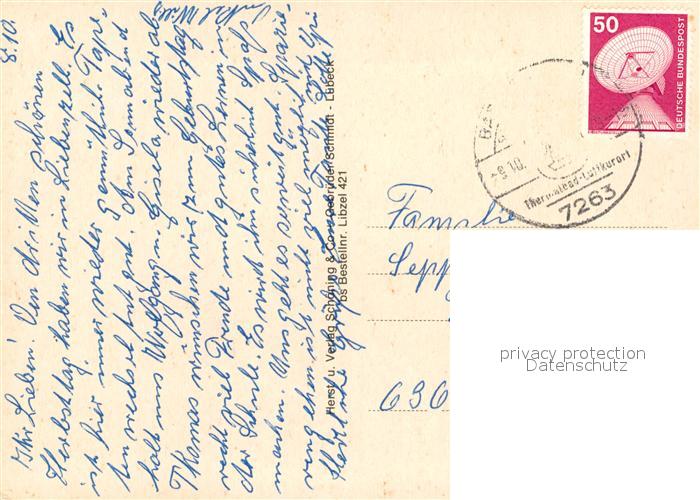 8.10.
Ihr Lieben! Den dritten schönen
Herbsttag haben wir in Liebenzell. Es
ist hier immer wieder gemütlich. Tape-
ten wechsel tut gut. Am Sonnabend
holt uns Wolfgang u. Gisela wieder ab.
Thomas wünschen wir zum Geburtstag
recht viel Freude und gutes Lernen in
der Schule. Es wird ihm sicherlich Spaß
machen. Uns geht es soweit gut. Spazie-
ren gehen ist nicht viel möglich.
Herzliche Grüße Tante
Onkel Willy
Herst. u. Verlag Schöning & Co + Gebrüder Schmidt · Lübeck
bs Bestellnr. Libzel 421
50
DEUTSCHE BUNDESPOST
Thermalbad-Luftkurort
7263
Familie
Sepp
636
privacy protection
Datenschutz